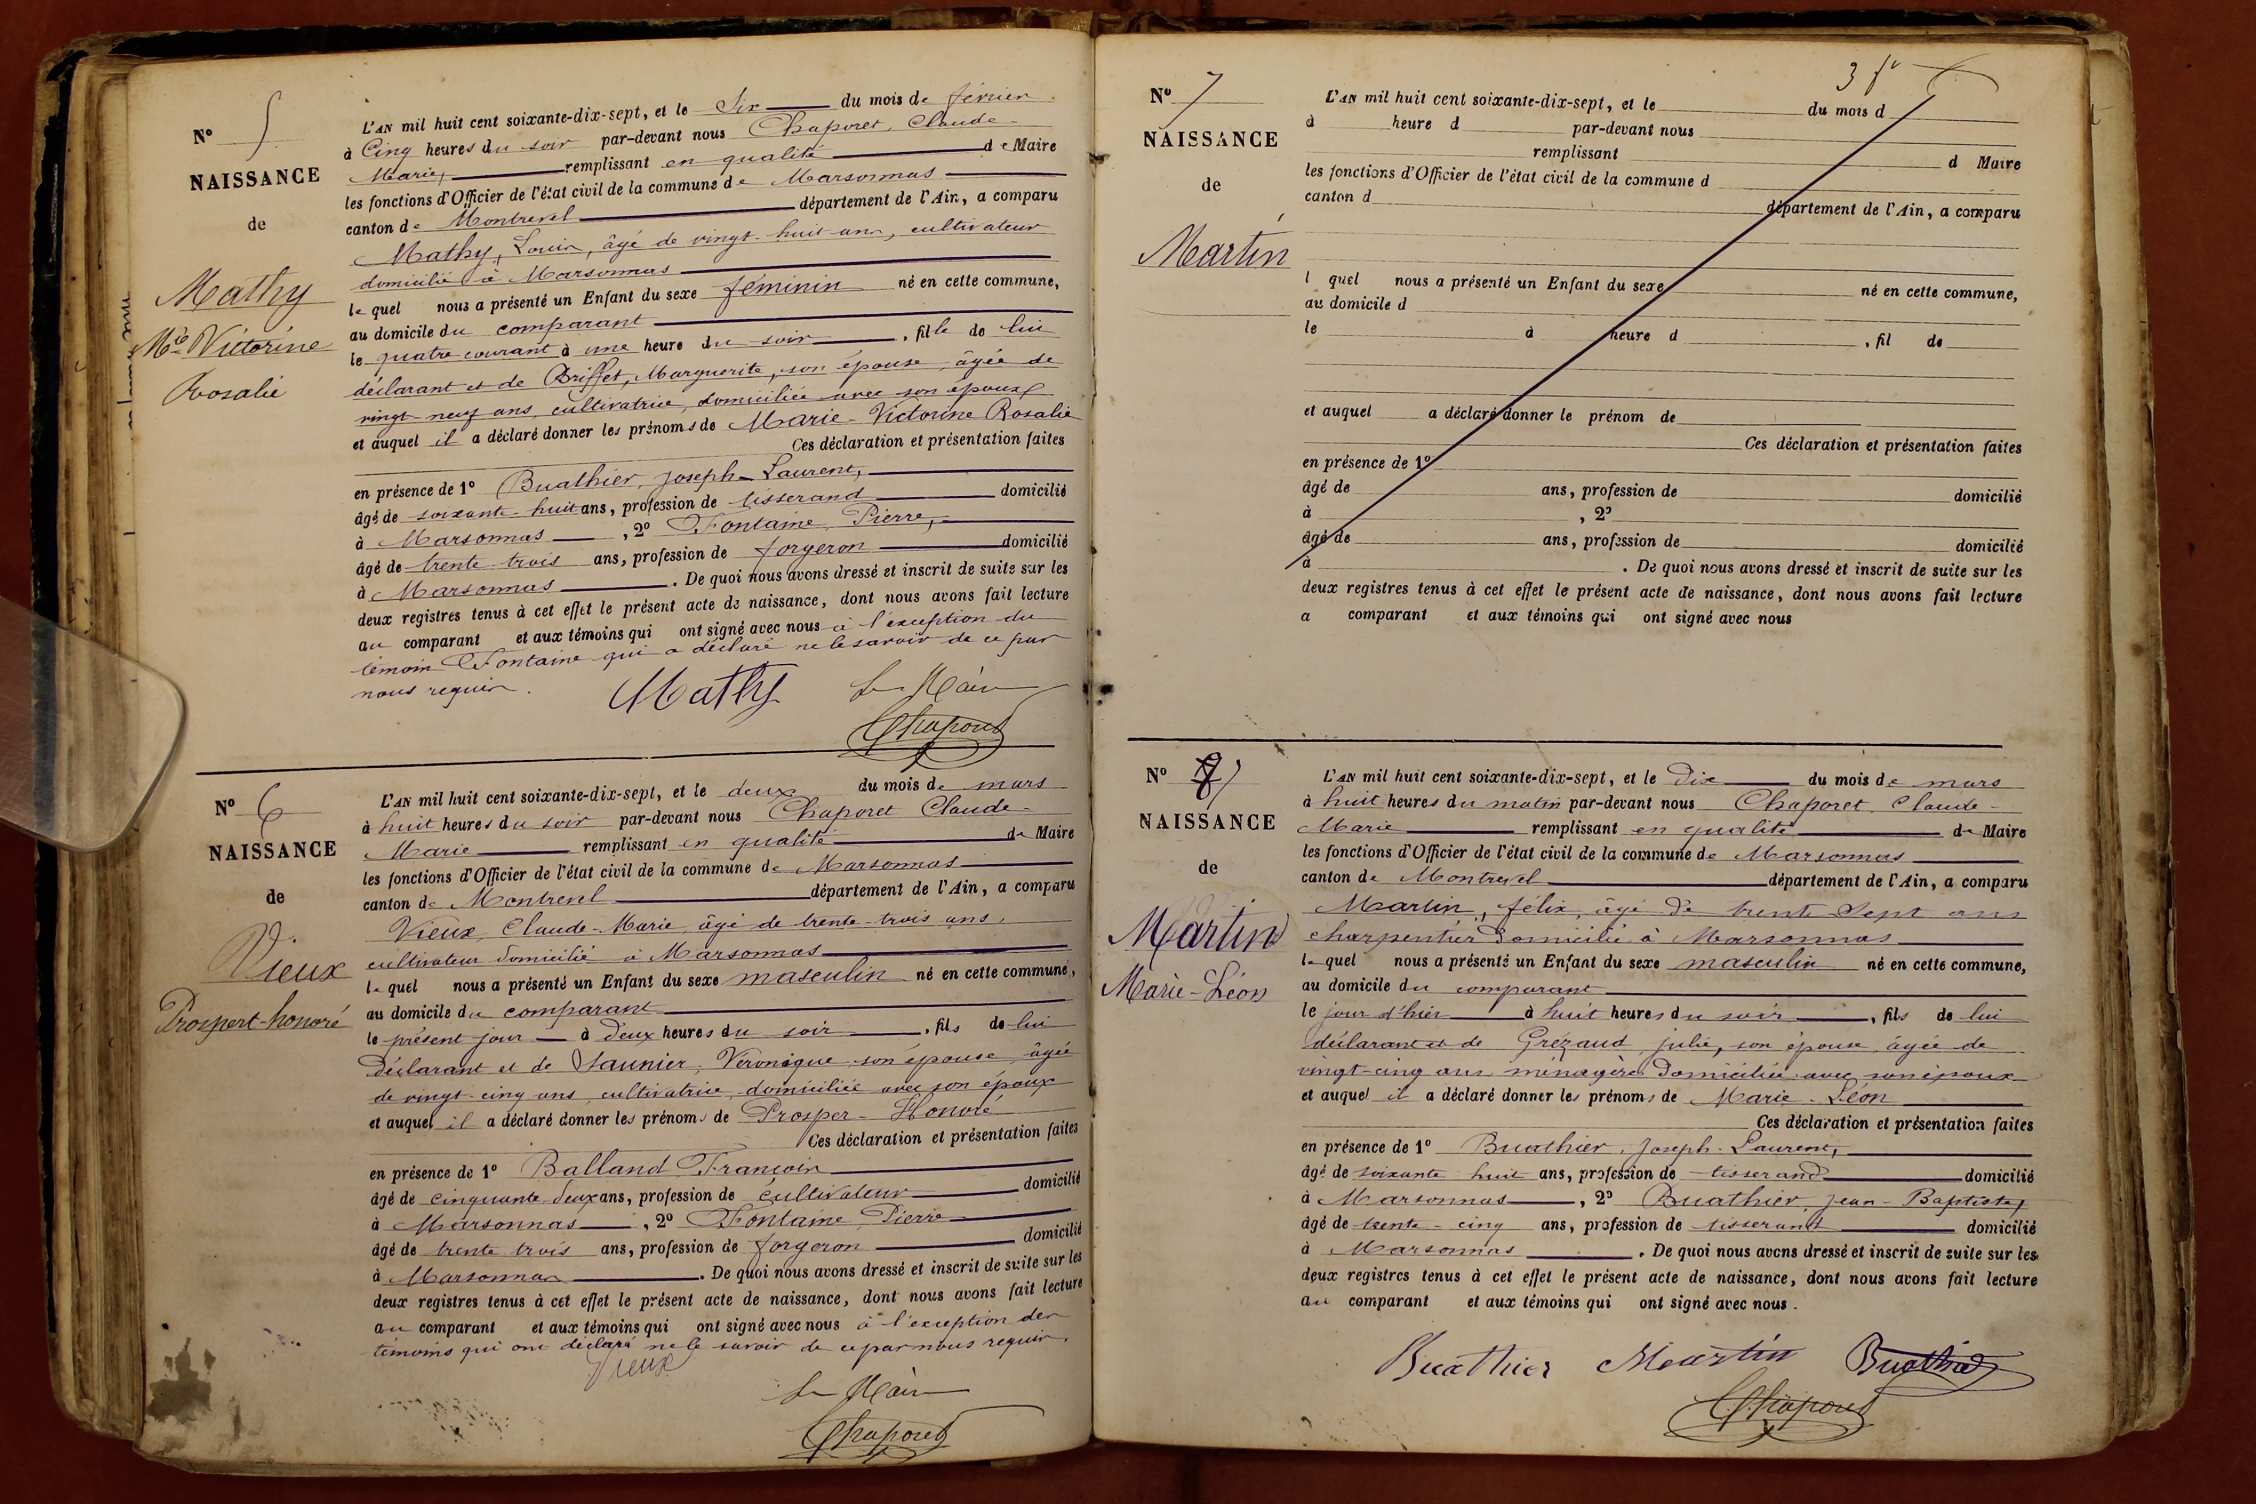 N° 5
NAISSANCE
de
Mathy
Mie Victorine
Rosalie
L'AN mil huit cent soixante-dix-sept, et le Six du mois de février
à Cinq heures du soir par-devant nous Chaporet, Claude-
Marie, remplissant en qualité de Maire
les fonctions d'Officier de l'état civil de la commune de Marsonnas
canton de Montrevel département de l'Ain, a comparu
Mathy, Louis, âgé de vingt-huit ans, cultivateur
domicilié à Marsonnas
lequel nous a présenté un Enfant du sexe féminin né en cette commune,
au domicile du comparant
le quatre courant à une heure du soir, fille de lui
déclarant et de Briffet, Marguerite, son épouse, âgée de
vingt-neuf ans, cultivatrice, domiciliée avec son époux
et auquel il a déclaré donner les prénoms de Marie-Victorine Rosalie
Ces déclaration et présentation faites
en présence de 1° Buathier, Joseph-Laurent,
âgé de soixante-huit ans, profession de tisserand domicilié
à Marsonnas, 2° Fontaine, Pierre,
âgé de trente-trois ans, profession de forgeron domicilié
à Marsonnas. De quoi nous avons dressé et inscrit de suite sur les
deux registres tenus à cet effet le présent acte de naissance, dont nous avons fait lecture
au comparant et aux témoins qui ont signé avec nous à l'exception du
témoin Fontaine qui a déclaré ne le savoir de ce par
nous requis.
Mathy Le Maire
Chaporet
N° 6
NAISSANCE
de
Vieux
Prospert-honoré
L'AN mil huit cent soixante-dix-sept, et le deux du mois de mars
à huit heures du soir par-devant nous Chaporet Claude-
Marie remplissant en qualité de Maire
les fonctions d'Officier de l'état civil de la commune de Marsonnas
canton de Montrevel département de l'Ain, a comparu
Vieux, Claude-Marie, âgé de trente-trois ans,
cultivateur domicilié à Marsonnas
lequel nous a présenté un Enfant du sexe masculin né en cette commune,
au domicile du comparant
le présent jour à deux heures du soir, fils de lui
Déclarant et de Saunier, Véronique son épouse, âgée
de vingt-cinq ans, cultivatrice, domiciliée avec son époux
et auquel il a déclaré donner les prénoms de Prosper-Honoré
Ces déclaration et présentation faites
en présence de 1° Balland François
âgé de cinquante-deux ans, profession de cultivateur domicilié
à Marsonnas, 2° Fontaine, Pierre
âgé de trente trois ans, profession de forgeron domicilié
à Marsonnas. De quoi nous avons dressé et inscrit de suite sur les
deux registres tenus à cet effet le présent acte de naissance, dont nous avons fait lecture
au comparant et aux témoins qui ont signé avec nous à l'exception des
témoins qui ont déclaré ne le savoir de ce par nous requis.
Vieux
Le Maire
Chaporet
3 fr
N° 7
NAISSANCE
de
Martin
L'AN mil huit cent soixante-dix-sept, et le du mois d
à heure d par-devant nous
remplissant d Maire
les fonctions d'Officier de l'état civil de la commune d
canton d département de l'Ain, a comparu
l quel nous a présenté un Enfant du sexe né en cette commune,
au domicile d
le à heure d , fil de
et auquel a déclaré donner le prénom de
Ces déclaration et présentation faites
en présence de 1°
âgé de ans, profession de domicilié
à , 2°
âgé de ans, profession de domicilié
à . De quoi nous avons dressé et inscrit de suite sur les
deux registres tenus à cet effet le présent acte de naissance, dont nous avons fait lecture
a comparant et aux témoins qui ont signé avec nous
N° 7
NAISSANCE
de
Martin
Marie-Léon
L'AN mil huit cent soixante-dix-sept, et le Dix du mois de mars
à huit heures du matin par-devant nous Chaporet, Claude-
Marie remplissant en qualité de Maire
les fonctions d'Officier de l'état civil de la commune de Marsonnas
canton de Montrevel département de l'Ain, a comparu
Martin, félix, âgé de trente sept ans
charpentier domicilié à Marsonnas
lequel nous a présenté un Enfant du sexe masculin né en cette commune,
au domicile du comparant
le jour d'hier à huit heures du soir, fils de lui
déclarant et de Grézaud, julie, son épouse, âgée de
vingt-cinq ans ménagère domiciliée avec son époux
et auquel il a déclaré donner les prénoms de Marie-Léon
Ces déclaration et présentation faites
en présence de 1° Buathier, Joseph-Laurent,
âgé de soixante huit ans, profession de tisserand domicilié
à Marsonnas, 2° Buathier, Jean-Baptiste,
âgé de trente-cinq ans, profession de tisserand domicilié
à Marsonnas. De quoi nous avons dressé et inscrit de suite sur les
deux registres tenus à cet effet le présent acte de naissance, dont nous avons fait lecture
au comparant et aux témoins qui ont signé avec nous.
Buathier Martin Buathier
Chaporet